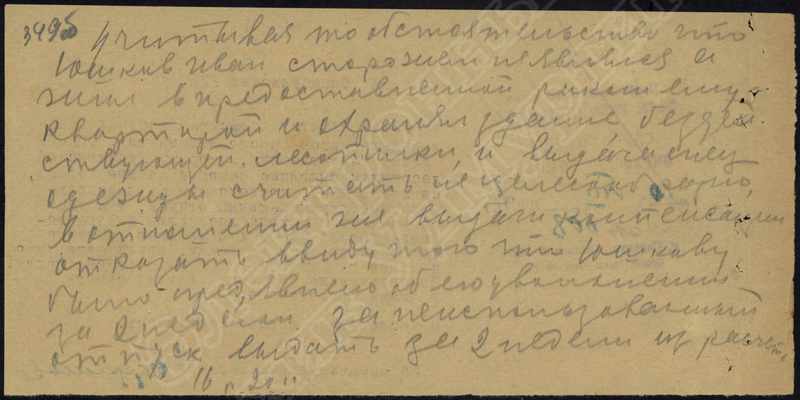 349об Учитывая то обстоятельство что
Юшков Иван сторожем являлся а
жил в предоставленной
квартирой и охранял здание бездей
ствующей лесопилки, и выдачу спец
одежды считать не целесообразно,
в отношении же выдачи компенсации
отказать ввиду того что Юшкову
было пред'явлено об его увольнении
за 2 недели за неиспользованный
отпуск выдать за 2 недели из расчета
16 р. 20 к.